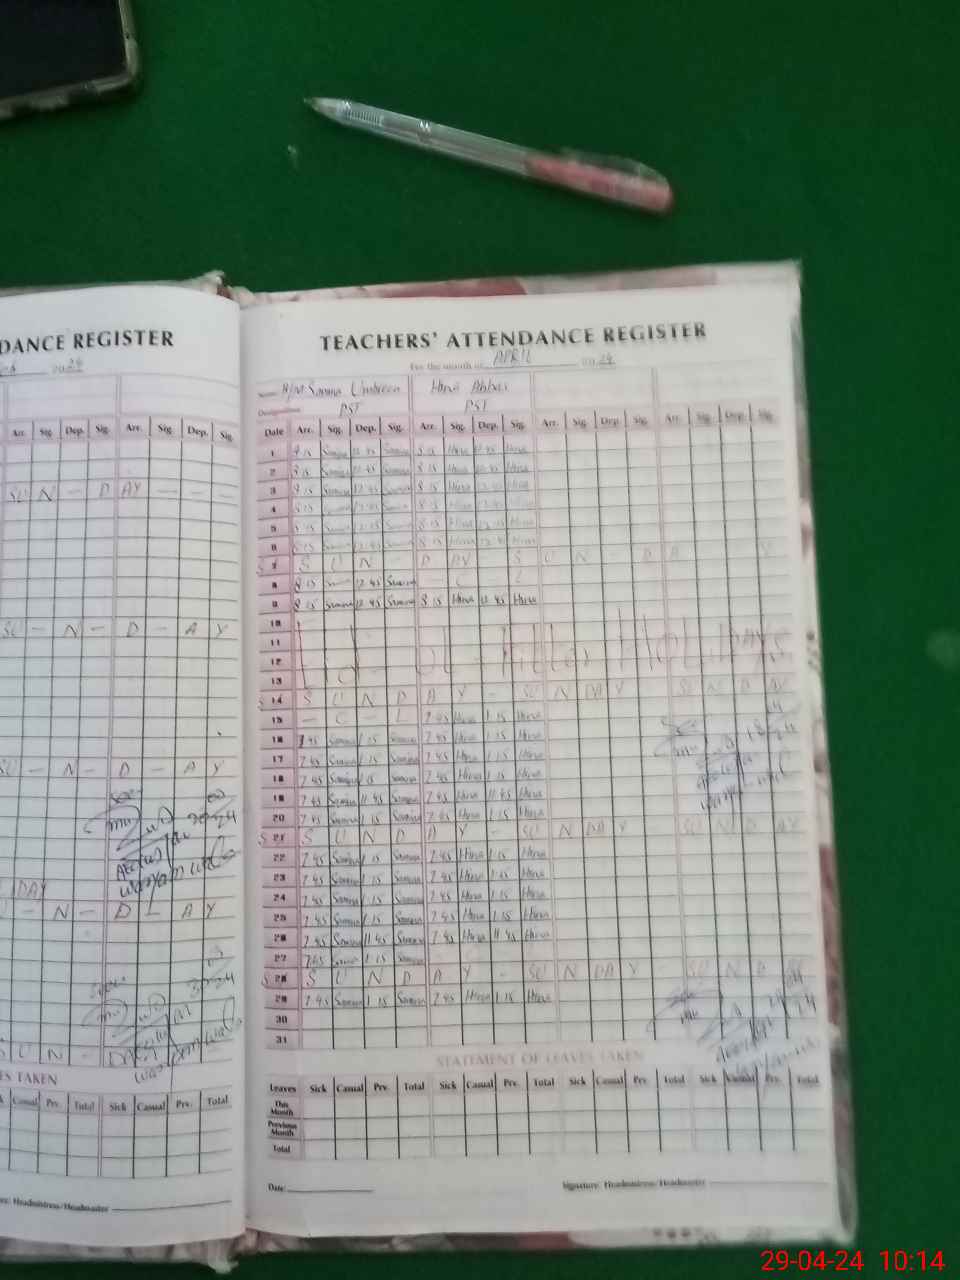 DANCE REGISTER
24
Arr. Sig. Dep. Sig. Arr. Sig. Dep. Sig.
SU N - D AY - - -
SU - N - D - A Y
SU - N - D - A Y
DAY
- N - D L A Y
S U N - DA
ES TAKEN
Casual Prv. Total Sick Casual Prv. Total
Headmistress/Headmaster
TEACHERS' ATTENDANCE REGISTER
For the month of APRIL 24
Name H/M Samina Umbreen Hina Abbas
Designation PST PST
Date Arr. Sig. Dep. Sig. Arr. Sig. Dep. Sig. Arr. Sig. Dep. Sig. Arr. Sig. Dep. Sig.
1 8 15 Samina 12 45 Samina 8 15 Hina 12 45 Hina
2 8 15 Samina 12 45 Samina 8 15 Hina 12 45 Hina
3 8 15 Samina 12 45 Samina 8 15 Hina 12 45 Hina
4 8 15 Samina 12 45 Samina 8 15 Hina 12 45 Hina
5 8 15 Samina 12 45 Samina 8 15 Hina 12 15 Hina
6 8 15 Samina 12 45 Samina 8 15 Hina 12 45 Hina
7 S U N - D AY - S U N - D A Y
8 8 15 12 45 Samina - C - L
9 8 15 Samina 12 45 Samina 8 15 Hina 12 45 Hina
10
11
12 Eid - ul - Fitter HOLIDAYS
13
14 S U N D A Y - SU N DA Y SU N D AY
15 - C - L 7 45 Hina 1 15 Hina
16 7 45 Samina 1 15 Samina 7 45 Hina 1 15 Hina
17 7 45 Samina 1 15 Samina 7 45 Hina 1 15 Hina
18 7 45 Samina 1 15 Samina 7 45 Hina 1 15 Hina
19 7 45 Samina 11 45 Samina 7 45 Hina 11 45 Hina
20 7 45 Samina 1 15 Samina 7 45 Hina 1 15 Hina
21 S U N D A Y - SU N DA Y SU N D AY
22 7 45 Samina 1 15 Samina 7 45 Hina 1 15 Hina
23 7 45 Samina 1 15 Samina 7 45 Hina 1 15 Hina
24 7 45 Samina 1 15 Samina 7 45 Hina 1 15 Hina
25 7 45 Samina 1 15 Samina 7 45 Hina 1 15 Hina
26 7 45 Samina 11 45 Samina 7 45 Hina 11 45 Hina
27 7 45 Samina 1 15 Samina
28 S U N D A Y - SU N DA Y SU N D
29 7 45 Samina 1 15 Samina 7 45 Hina 1 15 Hina
30
31
STATEMENT OF LEAVES TAKEN
Leaves Sick Casual Prv. Total Sick Casual Prv. Total Sick Casual Prv. Total Sick Casual Prv. Total
This Month
Previous Month
Total
Date: Signature: Headmistress/Headmaster
29-04-24 10:14